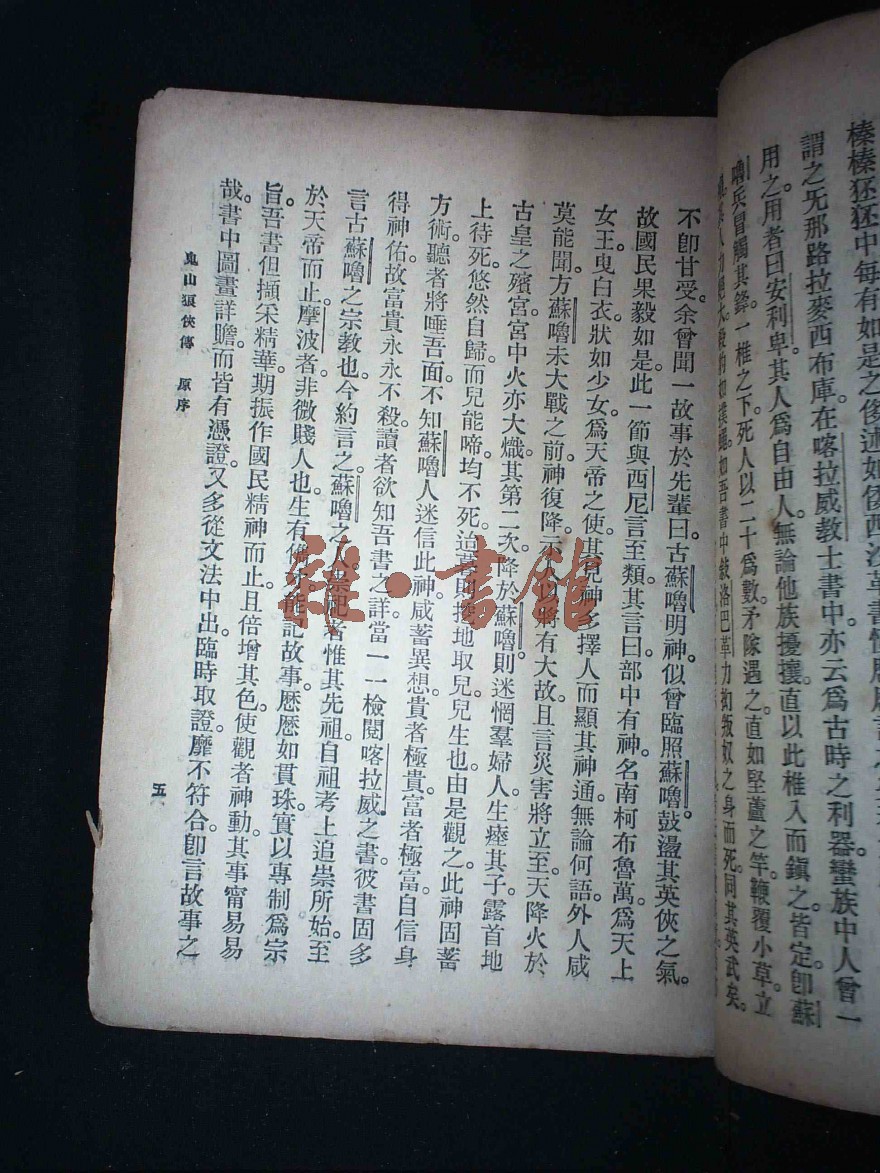 榛榛狉狉中每有如是之俊述如倭西沙革書
謂之旡那路拉麥西布庫在喀拉威教士書中亦云為古時之利器蠻族中人曾一
用之用者曰安利卑其人為自由人無論他族擾攘直以此椎入而鎮之皆定卽蘇
嚕兵冒觸其鋒一椎之下死人以二十為數矛隊遇之直如堅蘆之竿鞭覆小草立
如吾書中敘洛巴革力扣叛奴之身而死同其英武矣。
不卽甘受。余曾聞一故事於先輩曰。古蘇嚕明神。似曾臨照蘇嚕鼓盪其英俠之氣。
故國民果毅如是。此一節與西尼言至類。其言曰。部中有神。名南柯布魯萬。為天上
女王。曳白衣。狀如少女。為天帝之使。其見神多擇人而顯其神通。無論何語。外人咸
莫能聞。方蘇嚕未大戰之前。神復降示人。似將有大故。且言災害將立至。天降火於
古皇之殯宮。宮中火亦大熾。其第二次降於蘇嚕。則迷惘羣婦人。生瘞其子。露首地
上待死。悠然自歸。而兒能啼。均不死。迨去則掘地取兒。兒生也。由是觀之。此神固蓄
方術。聽者將唾吾面。不知蘇嚕人迷信此神。咸蓄異想。貴者極貴。富者極富。自信身
得神佑。故富貴永永不殺。讀者欲知吾書之詳。當一一檢閱喀拉威之書。彼書固多
言古蘇嚕之宗教也。今約言之。蘇嚕之人。祟祀者惟其先祖。自祖考上追祟所始。至
於天帝而止。摩波者。非微賤人也。生有能記故事。歷歷如貫珠。實以專制為宗
旨。吾書但擷采精華。期振作國民精神而止。且倍增其色。使觀者神動。其事甯易易
哉。書中圖畫詳贍。而皆有憑證。又多從文法中出。臨時取證。靡不符合。卽言故事之
鬼山狼俠傳　原序
五
雜·書館